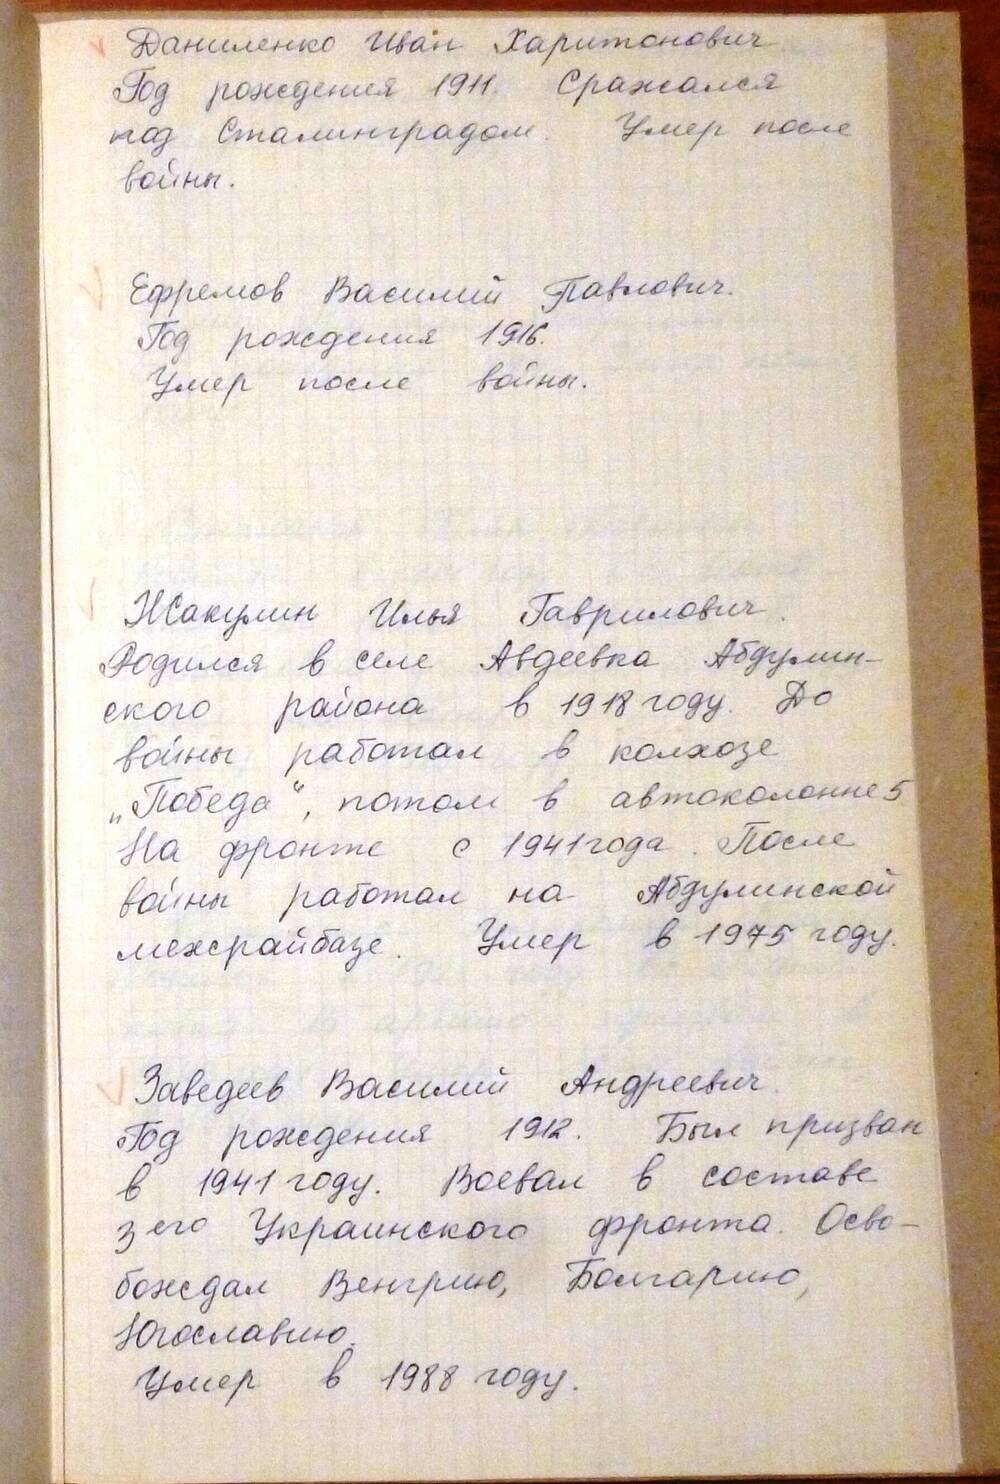 Даниленко Иван Харитонович
Год рождения 1911. Сражался
под Сталинградом. Умер после
войны.
Ефремов Василий Павлович.
Год рождения 1916.
Умер после войны.
Жакулин Илья Гаврилович.
Родился в селе Авдеевка Абдулин-
ского района в 1918 году. До
войны работал в колхозе
„Победа“, потом в автоколонне 5
На фронте с 1941 года. После
войны работал на Абдулинской
межрайбазе. Умер в 1975 году.
Заведеев Василий Андреевич.
Год рождения 1912. Был призван
в 1941 году. Воевал в составе
3его Украинского фронта. Осво-
бождал Венгрию, Болгарию,
Югославию.
Умер в 1988 году.